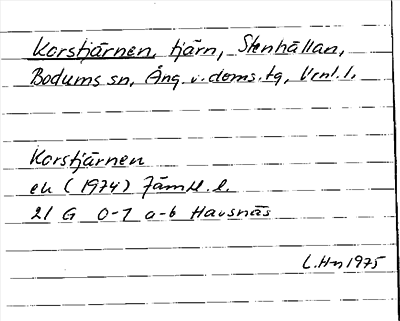 Korstjärnen, tjärn, Stenhällan,
Bodums sn, Ång. v. doms. tg, Vrnl. l.
Korstjärnen
ek (1974) Jämtl. l.
21 G 0-1 a-b Havsnäs
L.Hn 1975